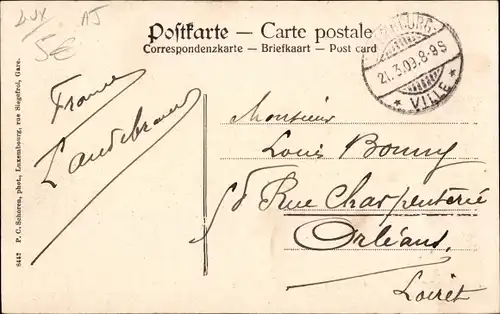 LUX AJ
5€
Postkarte – Carte postale
Correspondenzkarte – Briefkaart – Post card
21.3.09.8-9S
* VILLE *
France
Monsieur
Louis Bonny
Rue Charpenterie
Orléans
Loiret
8447 P. C. Schoren, phot., Luxembourg, rue Siegefroi, Gare.